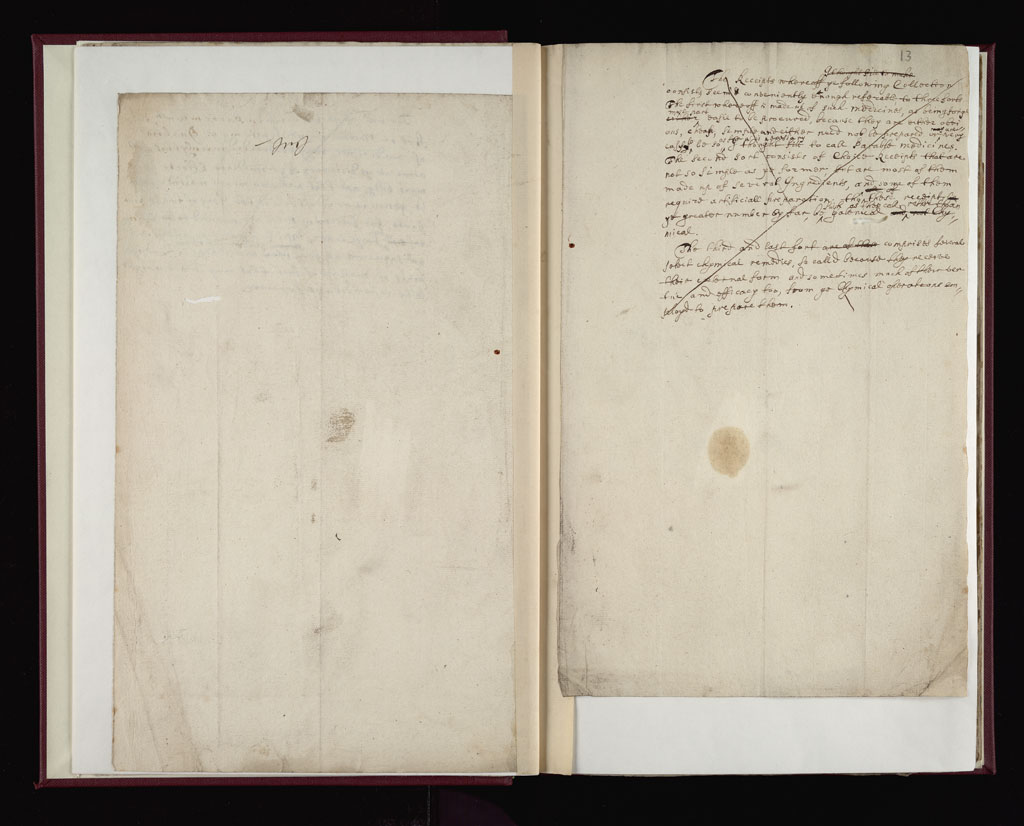 13
The Receipts whereoff ye following Collection
consists seem'd conveniently enough referable to three sorts
The first whereoff is made up of such medicines, as being for ye
most part easie to be procured, because they are either obvi-
ous, cheap, simple and either need not be prepared or very
easily
I thought fit to call Parable medicines.
The second sort consists of Choice Receipts that are
not so simple as ye former but are most of them
made up of several Ingredients, and some of them
require artificiall preparation, tho these receipts
ye greater number by far be galenical Chy-
mical.
The third and last sort are of them comprises several
select chymical remedies, so called because they receive
their external form and sometimes much of their ver-
tue and efficacy too, from ye Chymical operations em-
ploy'd to prepare them.